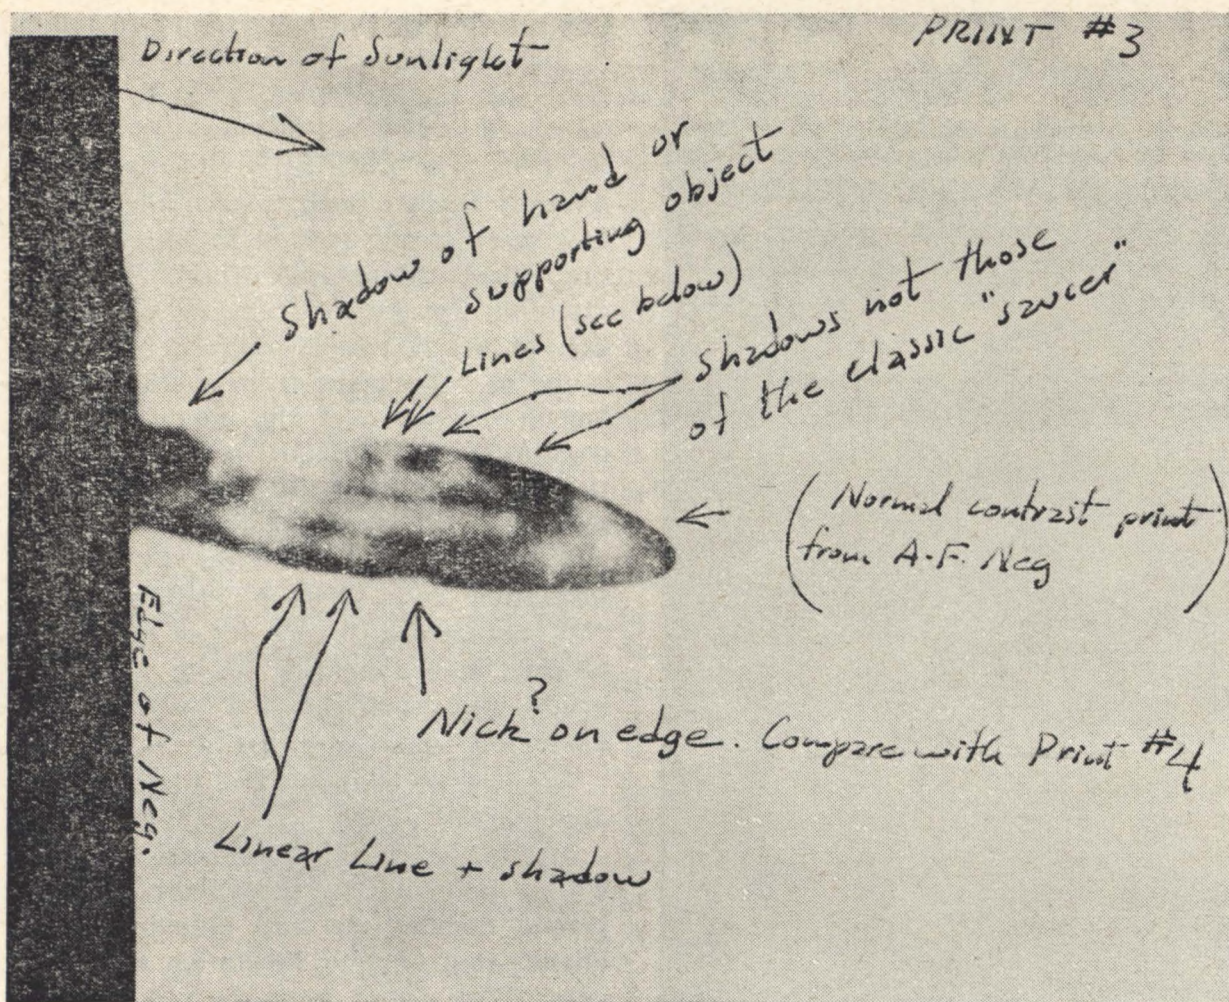 PRINT #3
Direction of Sunlight
Shadow of hand or
supporting object
Lines (see below)
Shadows not those
of the classic "saucer"
(Normal contrast print
from A-F. Neg)
Edge of Neg.
?
Nick on edge. Compare with Print #4
Linear Line + shadow